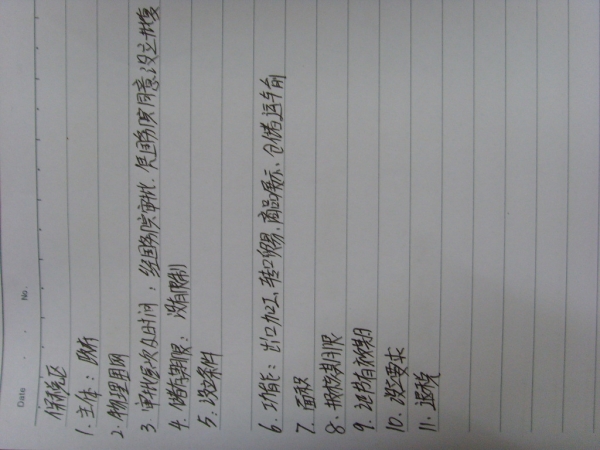 Date No.
保税区
1. 主体：
2. 物理围网
3. 审批层次及时间：经国务院审批，凭国务院同意设立批复
4. 储存期限：没有限制
5. 设立条件
6. 功能：出口加工、转口贸易、商品展示、仓储运输
7. 面积
8. 期限
9. 有效期
10. 设立要求
11. 退税